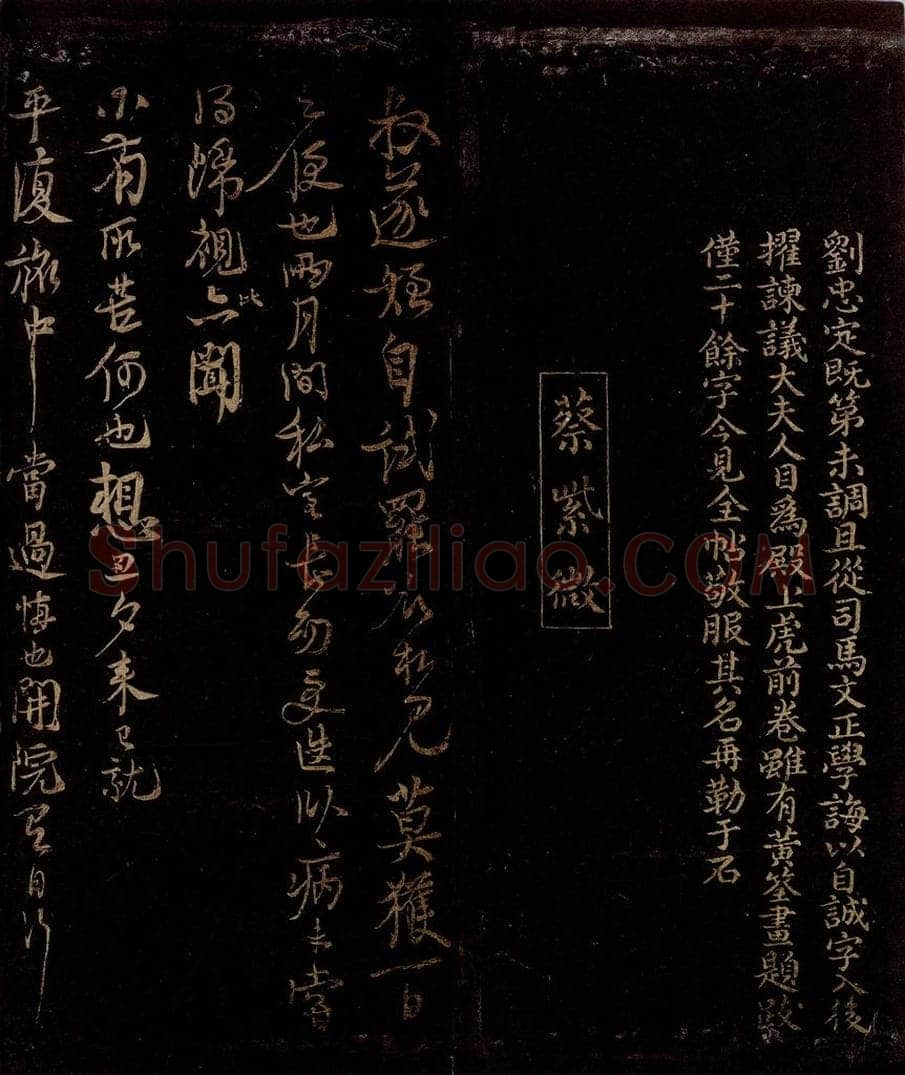 劉忠定既第未調且從司馬文正學誨以自誠字入後
擢諫議大夫人目為殿上虎前卷雖有黃筌畫題跋
僅二十餘字今見全帖敬服其名再勒于石
蔡紫微
叔遂 自試 以私 莫獲一日
之便也兩月間私室長幼更迭以病未嘗
得歸視 此 聞
小有所苦何也想旦夕來已就
平復旅中當過悔也開院 自行
Shufaziliao.COM